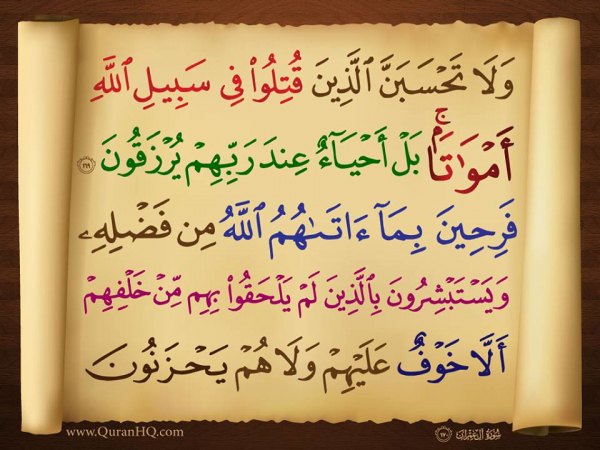 وَلَا تَحْسَبَنَّ ٱلَّذِينَ قُتِلُوا۟ فِى سَبِيلِ ٱللَّهِ
أَمْوَٰتًۢا ۚ بَلْ أَحْيَآءٌ عِندَ رَبِّهِمْ يُرْزَقُونَ ١٦٩
فَرِحِينَ بِمَآ ءَاتَىٰهُمُ ٱللَّهُ مِن فَضْلِهِۦ
وَيَسْتَبْشِرُونَ بِٱلَّذِينَ لَمْ يَلْحَقُوا۟ بِهِم مِّنْ خَلْفِهِمْ
أَلَّا خَوْفٌ عَلَيْهِمْ وَلَا هُمْ يَحْزَنُونَ
www.QuranHQ.com
سُورَةُ آلِ عِمْرَانَ ١٧٠